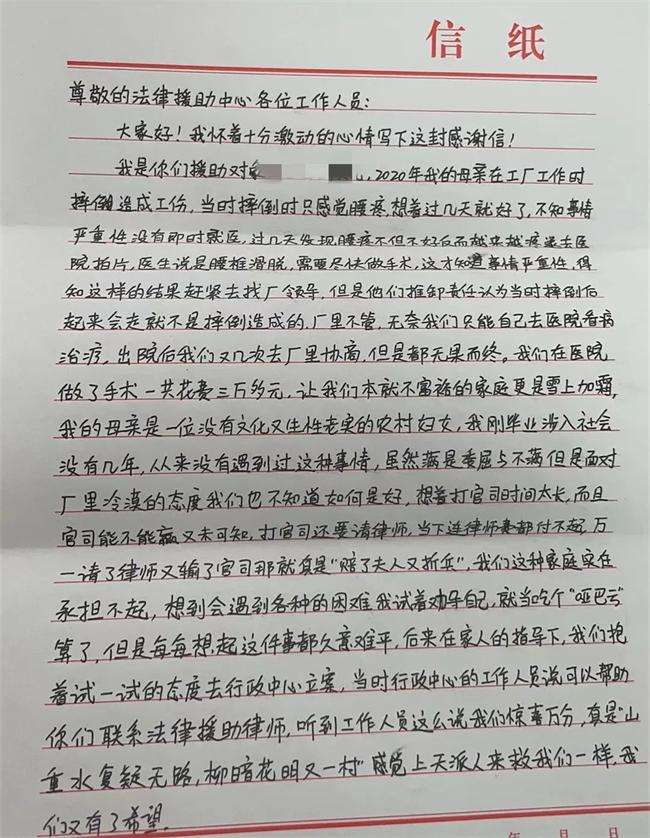 信 纸
尊敬的法律援助中心各位工作人员:
大家好!我怀着十分激动的心情写下这封感谢信!
我是你们援助对 ,2020年我的母亲在工厂工作时
摔倒造成工伤,当时摔倒时只感觉腰疼,想着过几天就好了,不知事情
严重性没有即时就医,过几天发现腰疼不但不好反而越来越疼去医
院拍片,医生说是腰椎滑脱,需要尽快做手术,这才知道事情严重性,得
知这样的结果赶紧去找厂领导,但是他们推卸责任认为当时摔倒后
起来会走就不是摔倒造成的,厂里不管,无奈我们只能自己去医院看病
治疗,出院后我们又几次去厂里协商,但是都无果而终。我们在医院
做了手术一共花费三万多元,让我们本就不富裕的家庭更是雪上加霜,
我的母亲是一位没有文化又生性老实的农村妇女,我刚毕业涉入社会
没有几年,从来没有遇到过这种事情,虽然满是委屈与不满但是面对
厂里冷漠的态度我们也不知道如何是好,想着打官司时间太长,而且
官司能不能赢又未可知,打官司还要请律师,当下连律师费都付不起,万
一请了律师又输了官司那就真是“赔了夫人又折兵”,我们这种家庭实在
承担不起,想到会遇到各种的困难我试着劝导自己,就当吃个“哑巴亏”
算了,但是每每想起这件事都久意难平,后来在家人的指导下,我们抱
着试一试的态度去行政中心立案,当时行政中心的工作人员说可以帮助
你们联系法律援助律师,听到工作人员这么说我们惊喜万分,真是“山
重水复疑无路,柳暗花明又一村”感觉上天派人来救我们一样,我
们又有了希望。
年 月 日